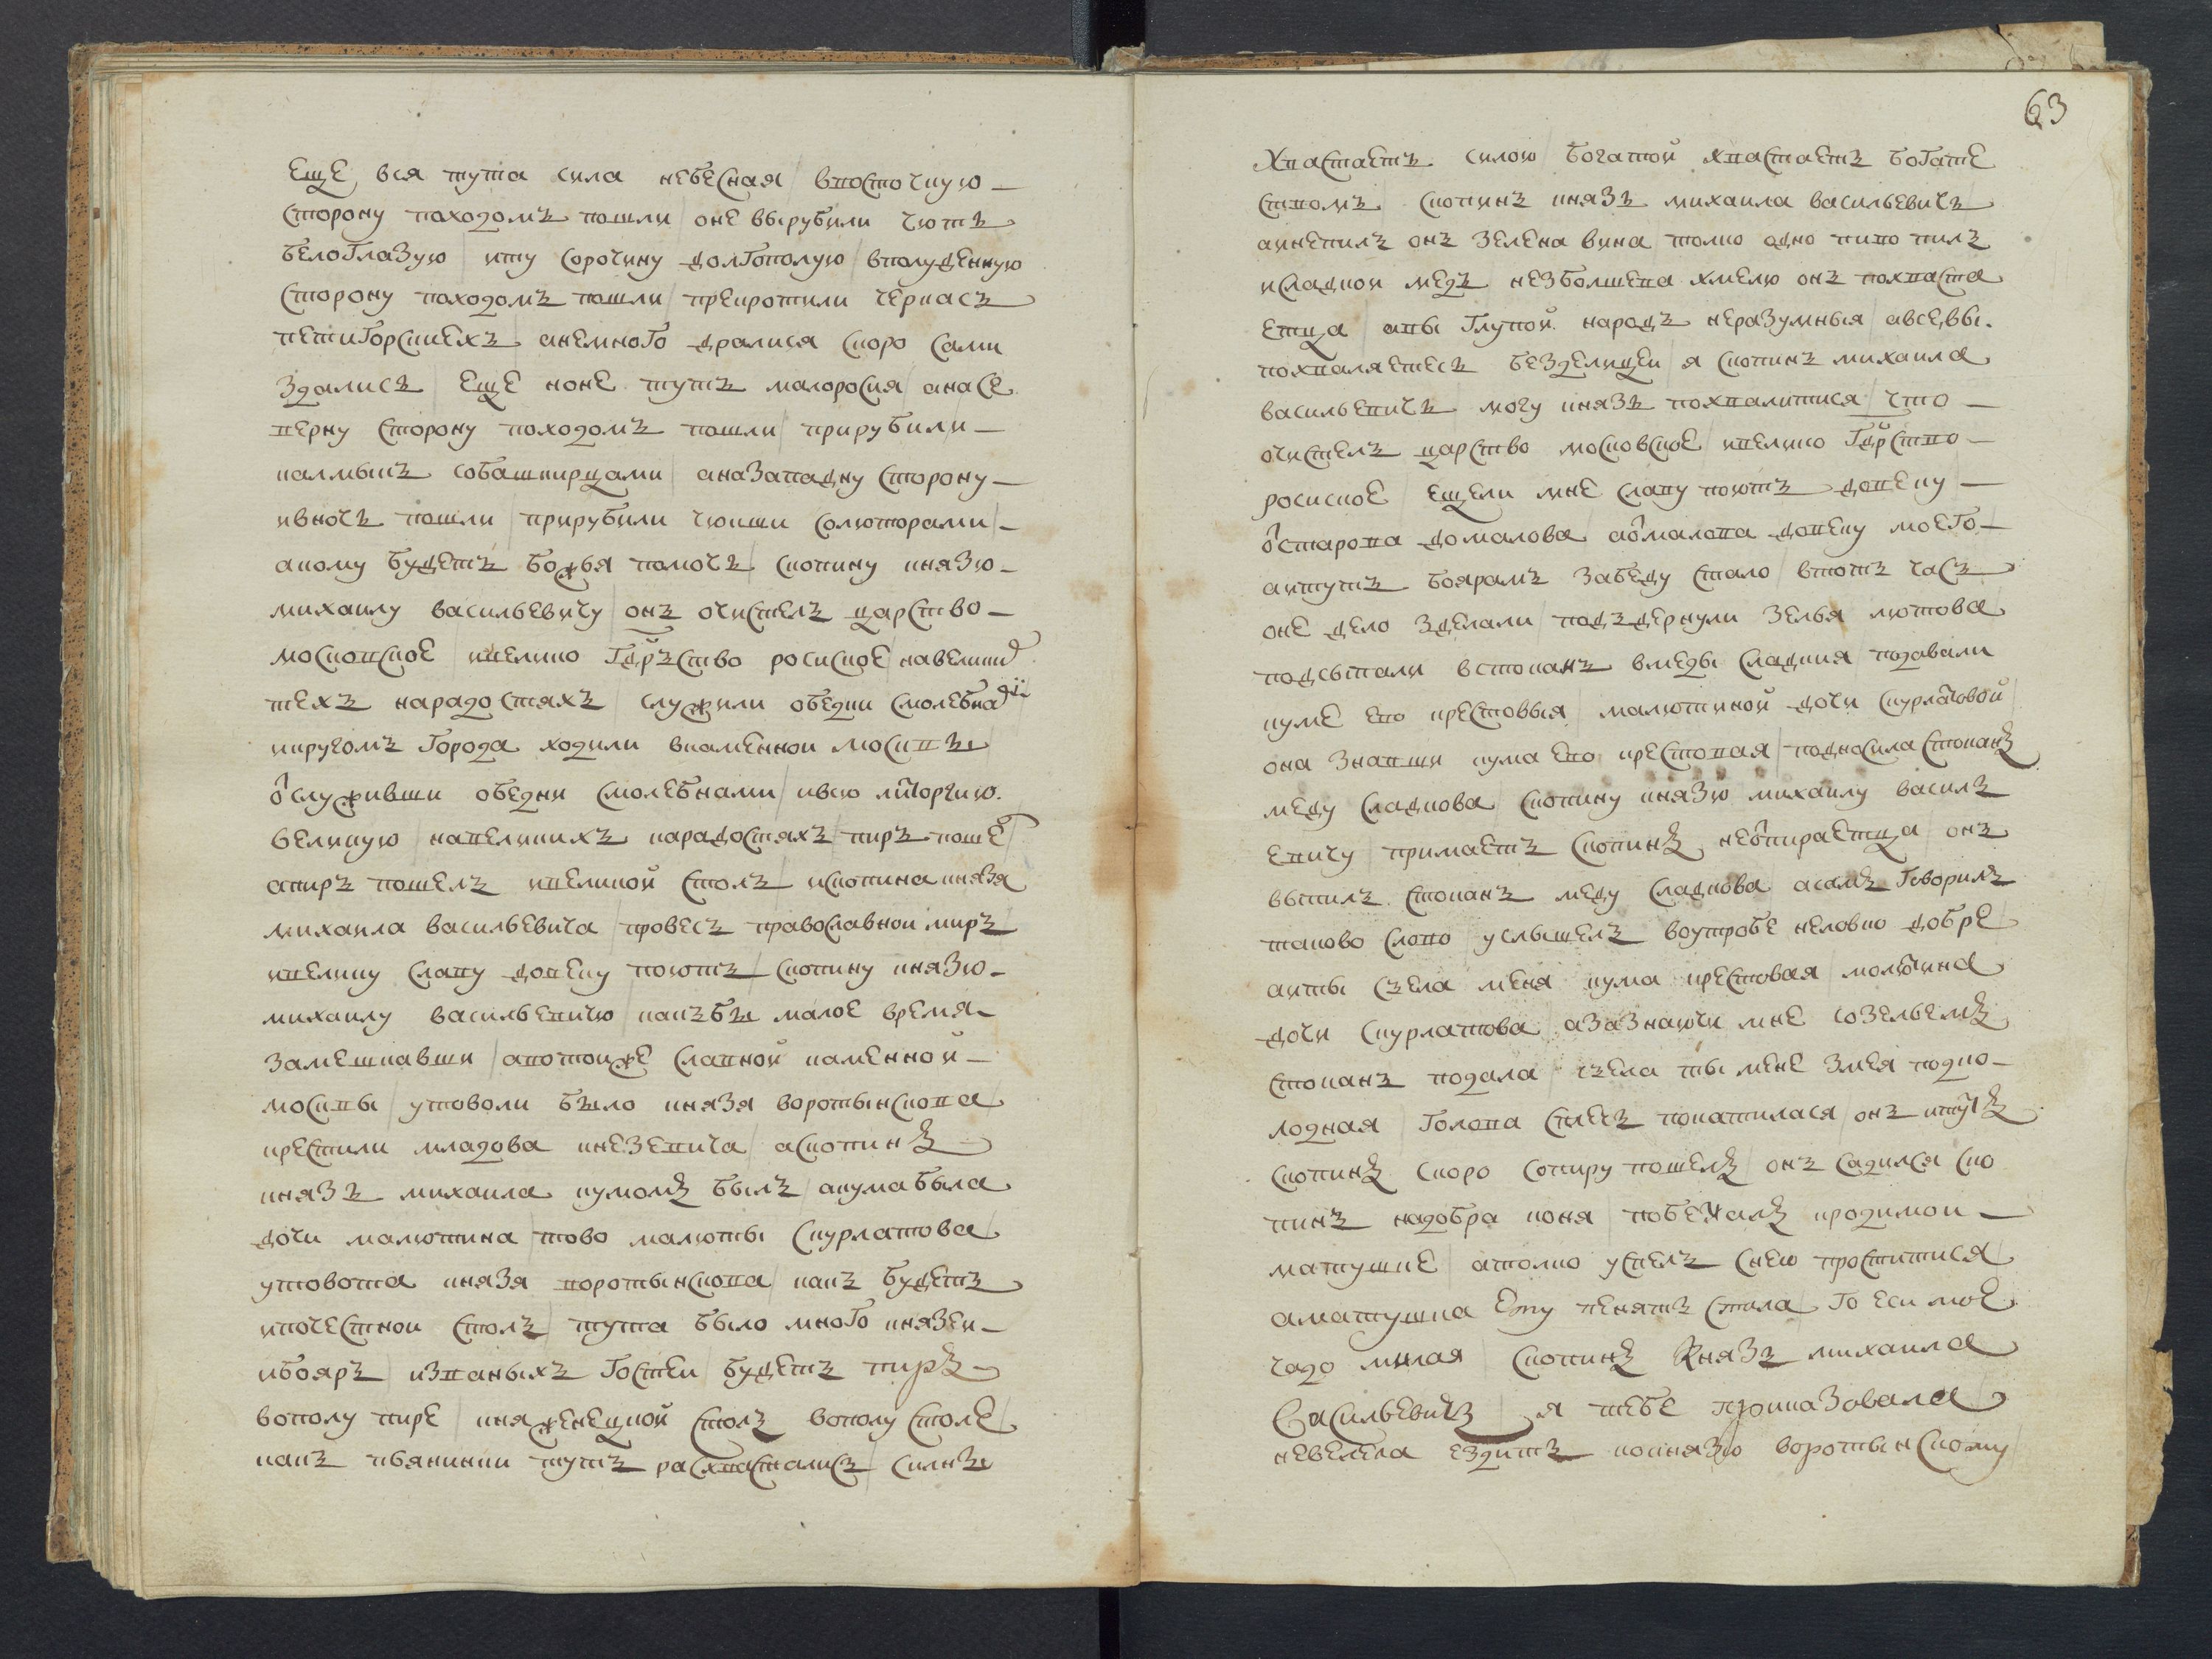 еще вся тута сила небесная / восточную
сторону походомъ пошли / оне вырубили чютъ
белоглазую / иту сорочину долгополую / вполуденную
сторону походомъ пошли / прекротили черкасъ
петигорскиехъ / анемного дралися скоро сами
здались / еще ноне тутъ малоросия / анасе
верну сторону походомъ пошли / прирубили
калмыкъ собашкирцами / аназападну сторону
ивночъ пошли / прирубили чюкши солюторами /
акому будетъ божья помочъ / скопину князю
михаилу васильевичу / онъ очистелъ царство
московское / ивелико гдрьство росиское / навелики
техъ нарадостяхъ / служили обедни смолебнами
икругомъ города ходили вкаменной москвы
ѿслуживши обедни смолебнами / ивсю литоргию
великую / навеликихъ нарадостяхъ пиръ поше
апиръ пошелъ ивеликой столъ / ископина князя
михаила васильевича / провесь православной миръ
ивелику славу довеку поютъ / скопину князю
михаилу васильевичю / какъбы малое время
замешкавши / авотойже славной каменной
москвы / утоволи было князя воротынскова
крестили младова кнезевича / аскопинъ
князь михаила кумомъ былъ / акума была
дочи малютина / тово малюты скурлатова
утовота князя воротынскова / какъ будетъ
ипочестной столъ / тута было много князей
ибояръ / изваныхъ гостей / будетъ пиръ
вополу пире / княженецкой столъ вополу столе /
какъ пьяниньки тутъ расхвасталисъ / силны
63
хвастаетъ силою / богатой хвастаетъ богате
ствомъ / скопинъ князь михаила васильевичъ
аинепилъ онъ зелена вина / толко одно пиво пилъ
исладкой медъ / незболшева хмелю онъ похваста
етца / авы глупой народъ неразумныя / авсевы
похваляетесь безделицей / я скопинъ михаила
васильевичь могу князь похвалитися / что
очистелъ царство московское / ивелико гдрство
росиское / ещели мне славу поютъ довеку
ѿстарова домалова / аѿмалова довеку моего
аитутъ боярамъ забеду стало / втотъ часъ
оне дело зделали / поддернули зелья лютова
подсыпали встоканъ вмеды сладкия / подавали
куме ево крестовыя / малютиной дочи скурлатовой /
она знавши кума ево крестовая / подносила стоканъ
меду сладкова / скопину князю михаилу василь
евичу / примаетъ скопинъ неѿпираетца / онъ
выпилъ стоканъ меду сладкова / асамъ говорилъ
таково слово / услышелъ воутробе неловко добре
аиты съела меня кума крестовая / молютина
дочи скурлатова / азазнаючи мне созельемъ
стоканъ подала / съела ты мене змея подко
лодная / голова сплечъ покатилася / онъ итутъ
скопинъ скоро сопиру пошелъ / онъ садился ско
пинъ надобра коня / побежалъ кродимой
матушке / атолко успелъ снею проститися /
аматушка ему пенять стала / го еси мое
чадо милая / скопинъ князь михаила
васильевичъ / я тебе приказовала
невелела ездить кокнязю воротынскому